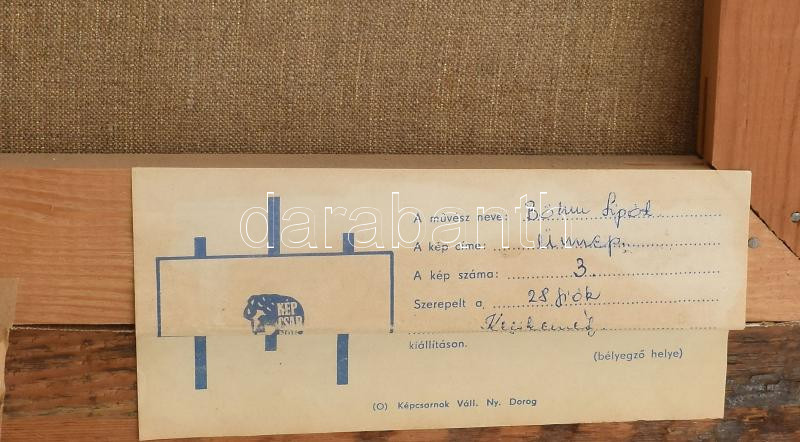 darabanth
A művész neve: Böhm Lipót
A kép címe: Ünnep.
A kép száma: 3.
Szerepelt a 28 fiók
Kecskemét
kiállításon.
(bélyegző helye)
KÉP
CSAR
NOK
(O) Képcsarnok Váll. Ny. Dorog